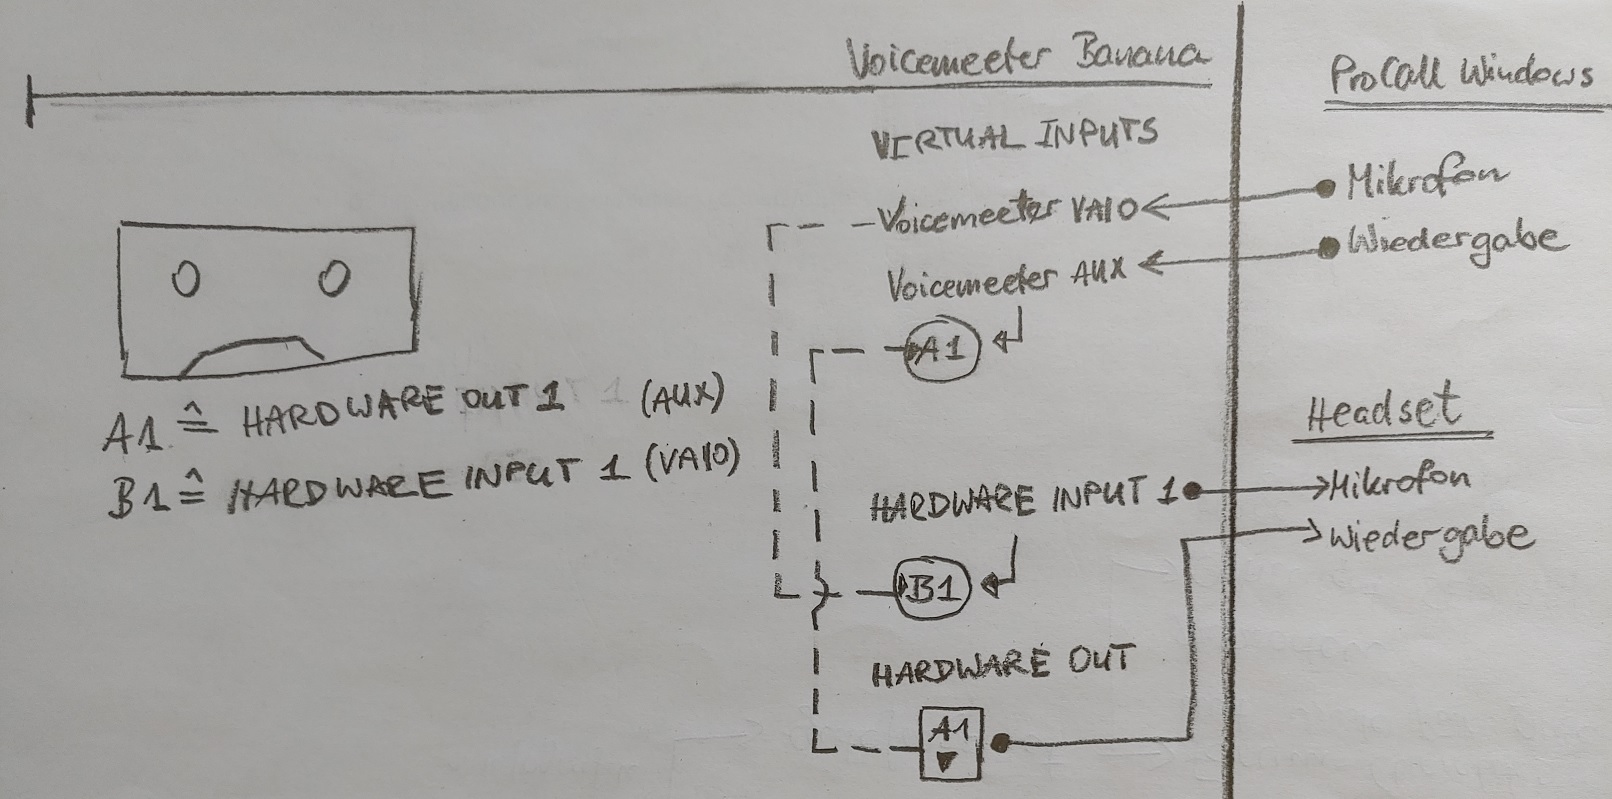 Voicemeeter Banana
ProCall Windows
VIRTUAL INPUTS
Voicemeeter VAIO
Mikrofon
Voicemeeter AUX
Wiedergabe
A1
A1 ≙ HARDWARE OUT 1 (AUX)
B1 ≙ HARDWARE INPUT 1 (VAIO)
Headset
HARDWARE INPUT 1
Mikrofon
Wiedergabe
B1
HARDWARE OUT
A1